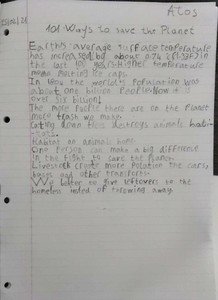 Atos
101 Ways to save the Planet
Earth's average surface temperature
has increased by about 0.74
in the last 100 years. Higher temperature
means melting ice caps.
In 1800 the world's Population was
about one billion People. Now it is
over six billion!
The more People there are on the Planet
more trash we make.
Cutting down trees destroys animals
Habitat an animals home.
One Person can make a big difference
in the fight to save the Planet.
Livestock create more polution the cars,
buses and other transports.
We better to give leftovers to the
homeless insted of throwing away.